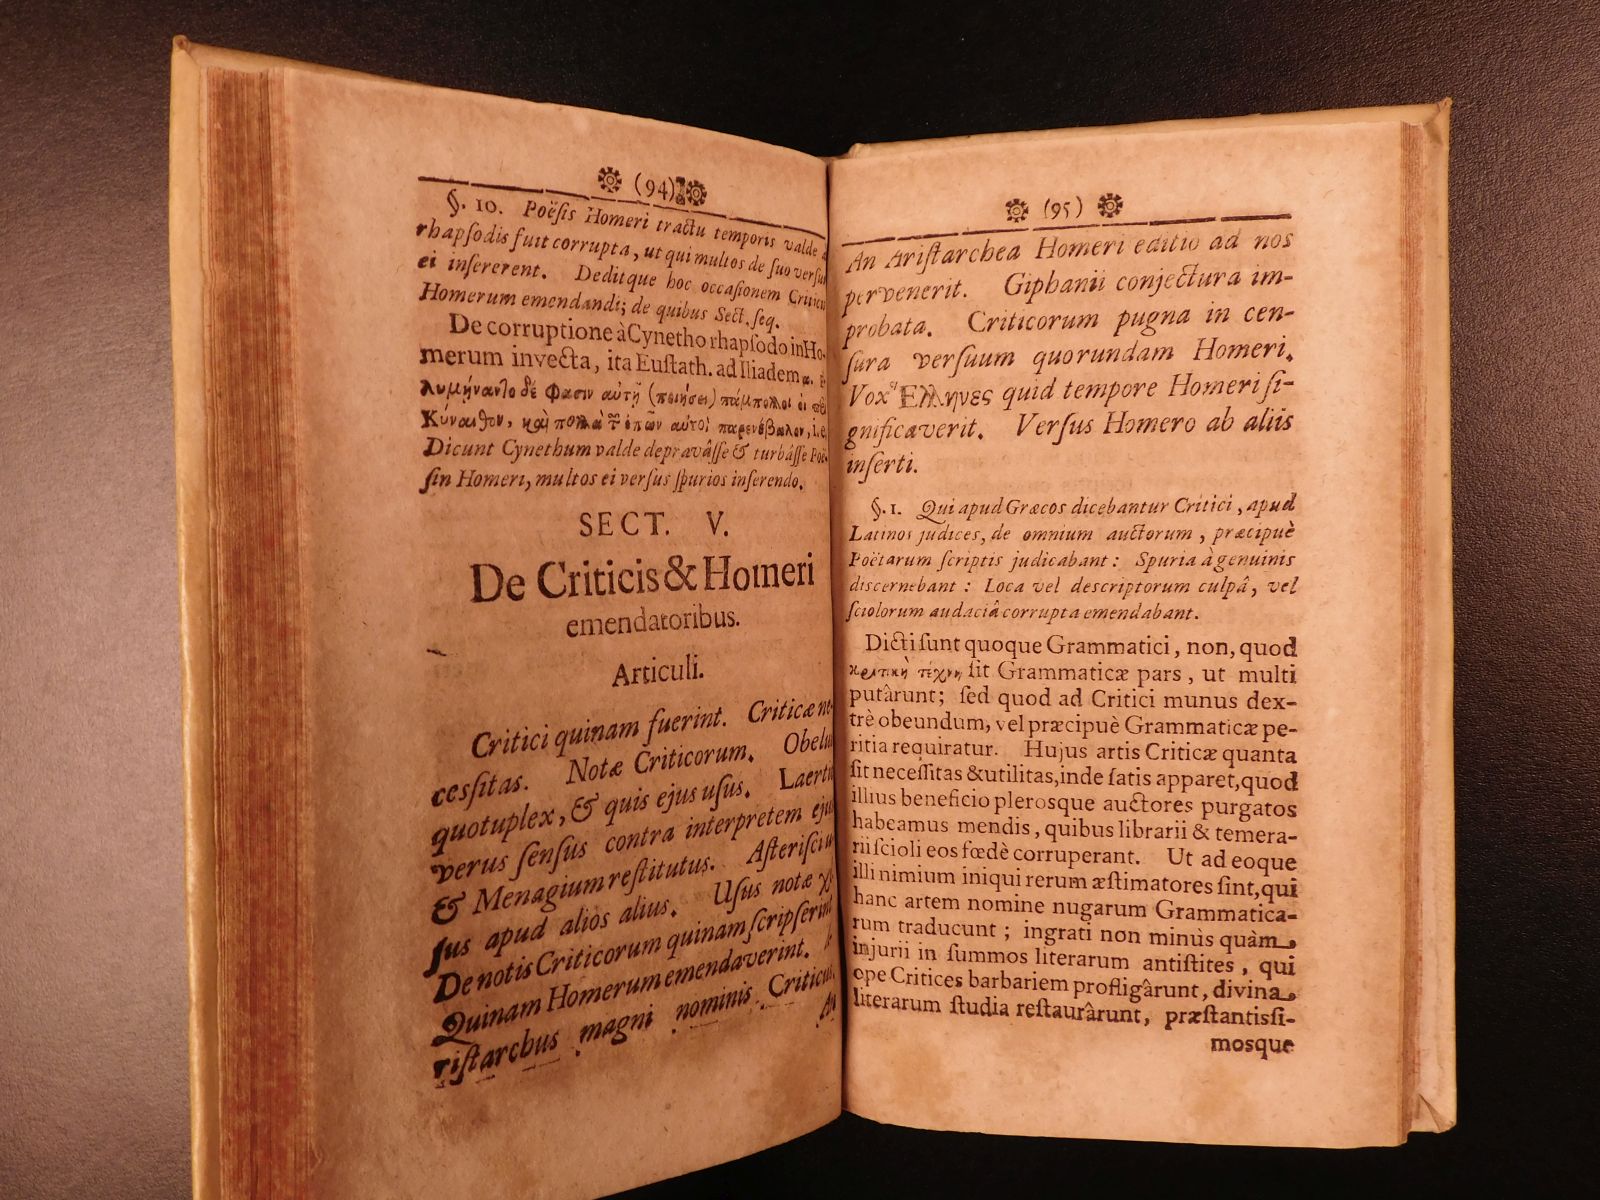 (94)
§. 10. Poësis Homeri tractu temporis valde
rhapsodis fuit corrupta, ut qui multos de suo versus
ei insererent. Deditque hoc occasionem Criticis
Homerum emendandi; de quibus Sect. seq.
De corruptione à Cynetho rhapsodo in Ho-
merum invecta, ita Eustath. ad Iliadem α.
λυμήναντο δέ φασιν αὐτῇ (ποιήσει) πάμπολλοι οἱ
Κύναιθον, καὶ πολλὰ τῶν ἐπῶν αὐτοὶ παρενέβαλον, i. e.
Dicunt Cynethum valde depravâsse & turbâsse Poë-
sin Homeri, multos ei versus spurios inserendo.
SECT. V.
De Criticis & Homeri
emendatoribus.
Articuli.
Critici quinam fuerint. Criticæ ne-
cessitas. Notæ Criticorum. Obelus
quotuplex, & quis ejus usus. Laertii
verus sensus contra interpretem ejus
& Menagium restitutus. Asterisci u-
sus apud alios alius. Usus notæ
De notis Criticorum quinam scripserint
Quinam Homerum emendaverint.
ristarchus magni nominis Criticus.
An
(95)
An Aristarchea Homeri editio ad nos
pervenerit. Giphanii conjectura im-
probata. Criticorum pugna in cen-
sura versuum quorundam Homeri.
Vox Ἕλληνες quid tempore Homeri si-
gnificaverit. Versus Homero ab aliis
inserti.
§. 1. Qui apud Græcos dicebantur Critici, apud
Latinos judices, de omnium auctorum, præcipuè
Poëtarum scriptis judicabant: Spuria à genuinis
discernebant: Loca vel descriptorum culpâ, vel
sciolorum audaciâ corrupta emendabant.
Dicti sunt quoque Grammatici, non, quod
κριτικὴ τέχνη sit Grammaticæ pars, ut multi
putârunt; sed quod ad Critici munus dex-
trè obeundum, vel præcipuè Grammaticæ pe-
ritia requiratur. Hujus artis Criticæ quanta
sit necessitas & utilitas, inde satis apparet, quod
illius beneficio plerosque auctores purgatos
habeamus mendis, quibus librarii & temera-
rii scioli eos fœdè corruperant. Ut adeoque
illi nimium iniqui rerum æstimatores sint, qui
hanc artem nomine nugarum Grammatica-
rum traducunt; ingrati non minùs quàm
injurii in summos literarum antistites, qui
ope Critices barbariem profligârunt, divina
literarum studia restaurârunt, præstantissi-
mosque